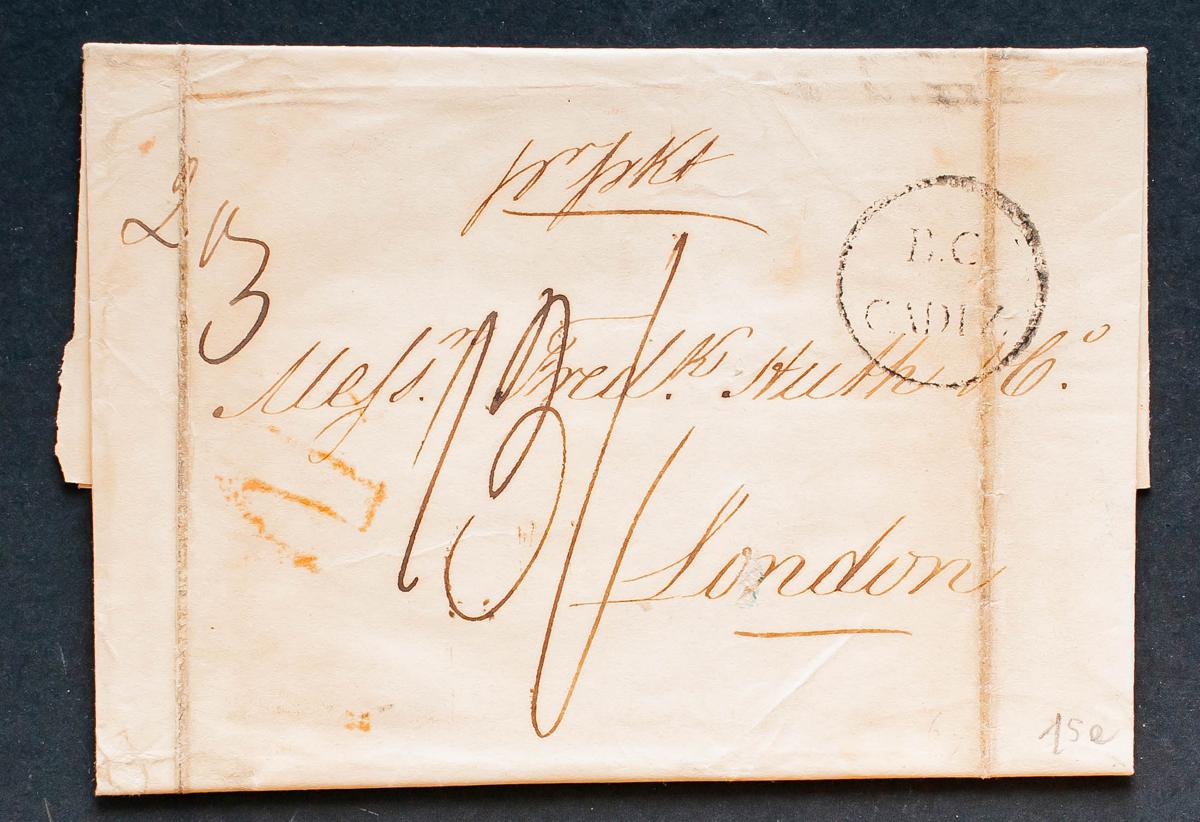 pr pkt
B.C
CADIZ
2
"3
Messrs. Fredk. Huth & Co.
London
15e